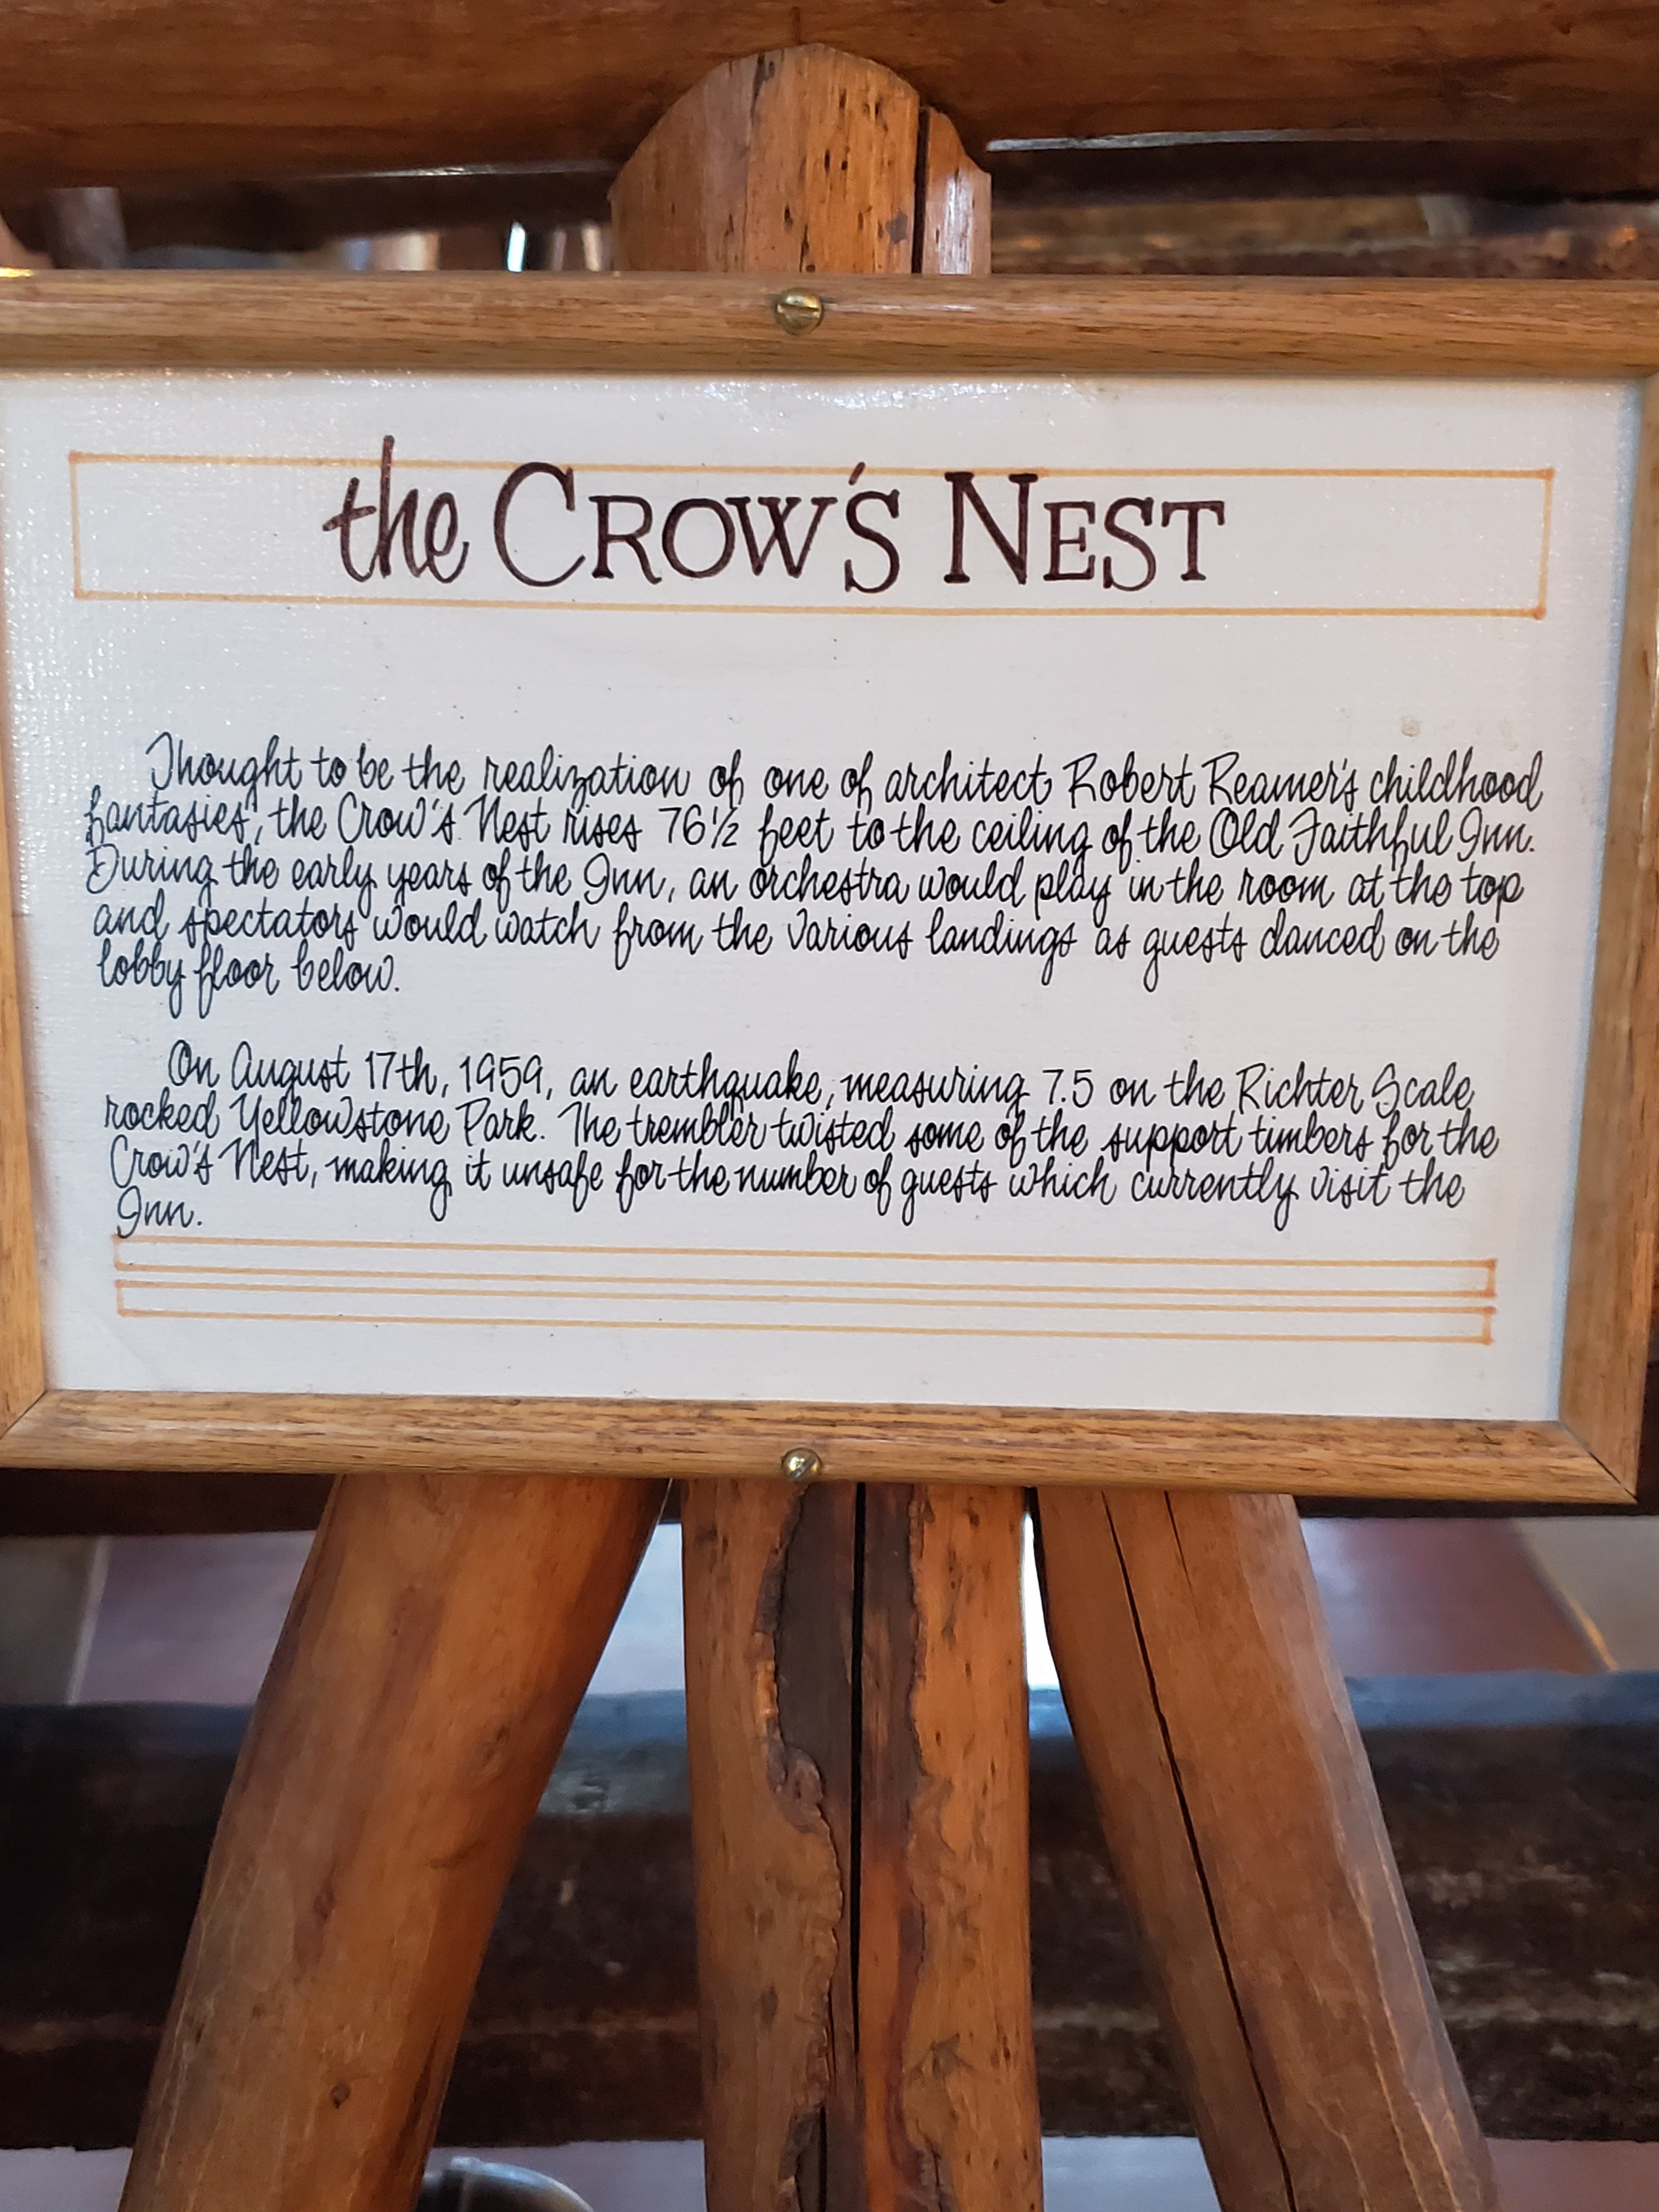 the CROW'S NEST
Thought to be the realization of one of architect Robert Reamer's childhood
fantasies, the Crow's Nest rises 76½ feet to the ceiling of the Old Faithful Inn.
During the early years of the Inn, an orchestra would play in the room at the top
and spectators would watch from the various landings as guests danced on the
lobby floor below.
On August 17th, 1959, an earthquake, measuring 7.5 on the Richter Scale
rocked Yellowstone Park. The tremblor twisted some of the support timbers for the
Crow's Nest, making it unsafe for the number of guests which currently visit the
Inn.